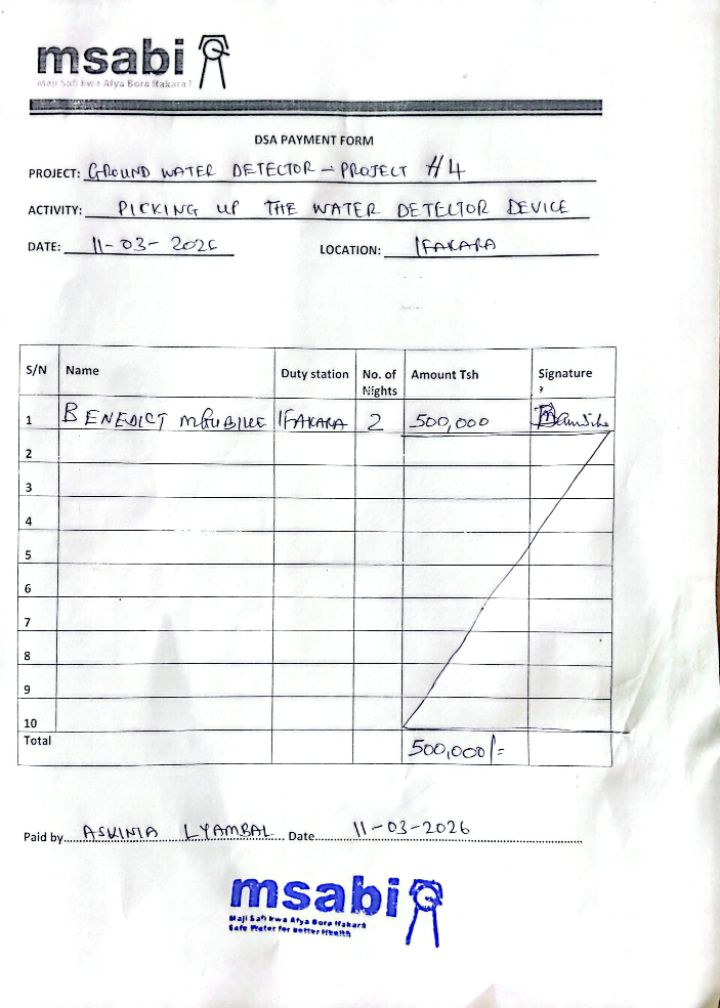 msabi
Maji Safi kwa Afya Bora Ifakara!
DSA PAYMENT FORM
PROJECT: GROUND WATER DETECTOR - PROJECT #4
ACTIVITY: PICKING UP THE WATER DETECTOR DEVICE
DATE: 11-03-2026 LOCATION: IFAKARA
S/N Name Duty station No. of Nights Amount Tsh Signature
1 BENEDICT IFAKARA 2 500,000
2
3
4
5
6
7
8
9
10
Total 500,000/=
Paid by ASKINIA LYAMBAL Date 11-03-2026
msabi
Maji Safi kwa Afya Bora Ifakara
Safe Water for Better Health